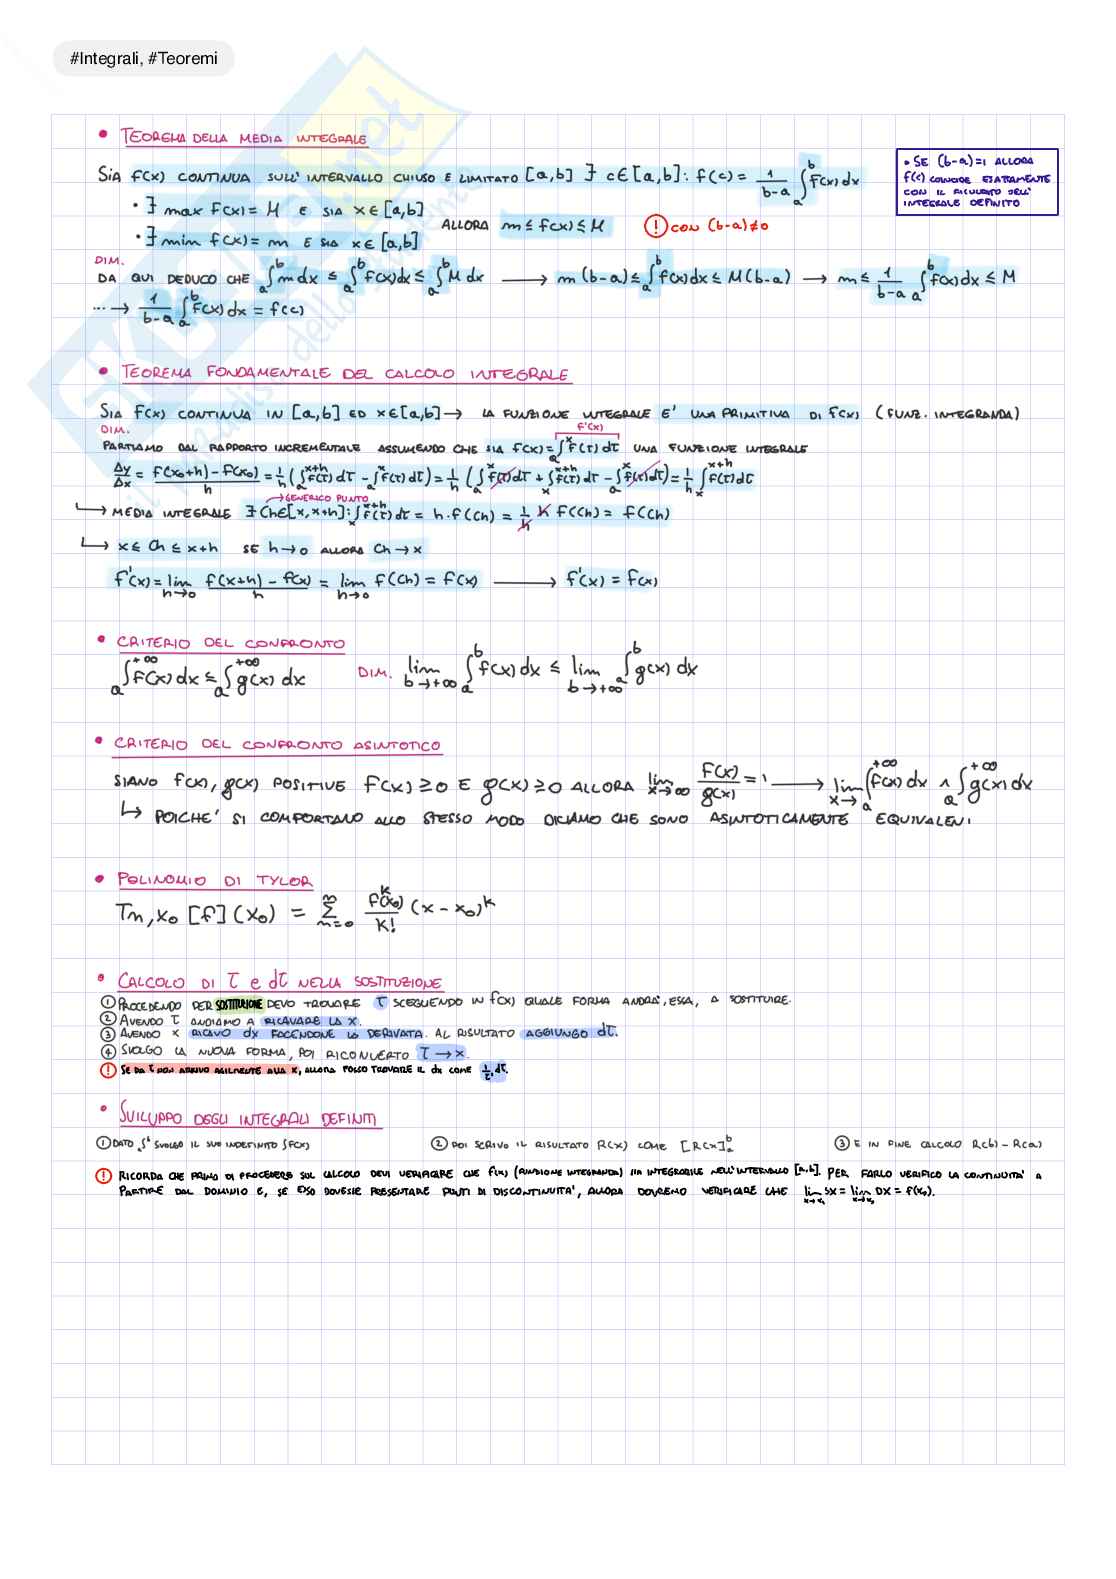 #Integrali, #Teoremi
• TEOREMA DELLA MEDIA INTEGRALE
SIA f(x) CONTINUA SULL'INTERVALLO CHIUSO E LIMITATO [a,b] ∃ c∈[a,b]: f(c) = 1/(b-a) ∫_a^b f(x)dx
• SE (b-a)=1 ALLORA
f(c) COINCIDE ESATTAMENTE
CON IL RISULTATO DELL'
INTEGRALE DEFINITO
• ∃ max f(x) = M E SIA x∈[a,b]
• ∃ min f(x) = m E SIA x∈[a,b]
ALLORA m ≤ f(x) ≤ M
! CON (b-a)≠0
DIM.
DA QUI DEDUCO CHE ∫_a^b m dx ≤ ∫_a^b f(x)dx ≤ ∫_a^b M dx → m(b-a) ≤ ∫_a^b f(x)dx ≤ M(b-a) → m ≤ 1/(b-a) ∫_a^b f(x)dx ≤ M
... → 1/(b-a) ∫_a^b f(x)dx = f(c)
• TEOREMA FONDAMENTALE DEL CALCOLO INTEGRALE
SIA f(x) CONTINUA IN [a,b] ED x∈[a,b] → LA FUNZIONE INTEGRALE E' UNA PRIMITIVA DI f(x) (FUNZ. INTEGRANDA)
DIM.
F'(x)
PARTIAMO DAL RAPPORTO INCREMENTALE ASSUMENDO CHE SIA F(x) = ∫_a^x f(τ)dτ UNA FUNZIONE INTEGRALE
Δy/Δx = (F(x₀+h) - F(x₀))/h = 1/h (∫_a^{x+h} f(τ)dτ - ∫_a^x f(τ)dτ) = 1/h (∫_a^x f(τ)dτ + ∫_x^{x+h} f(τ)dτ - ∫_a^x f(τ)dτ) = 1/h ∫_x^{x+h} f(τ)dτ
→ GENERICO PUNTO
↳ MEDIA INTEGRALE ∃ Ch∈[x, x+h]: ∫_x^{x+h} f(τ)dτ = h·f(Ch) = 1/h h f(Ch) = f(Ch)
↳ x ≤ Ch ≤ x+h SE h→0 ALLORA Ch→x
F'(x) = lim_{h→0} (F(x+h) - F(x))/h = lim_{h→0} f(Ch) = f(x) → F'(x) = f(x)
• CRITERIO DEL CONFRONTO
∫_a^{+∞} f(x)dx ≤ ∫_a^{+∞} g(x)dx DIM. lim_{b→+∞} ∫_a^b f(x)dx ≤ lim_{b→+∞} ∫_a^b g(x)dx
• CRITERIO DEL CONFRONTO ASINTOTICO
SIANO f(x), g(x) POSITIVE f(x) ≥ 0 E g(x) ≥ 0 ALLORA lim_{x→∞} f(x)/g(x) = 1 → lim_{x→} ∫_a^{+∞} f(x)dx ∧ ∫_a^{+∞} g(x)dx
↳ POICHE' SI COMPORTANO ALLO STESSO MODO DICIAMO CHE SONO ASINTOTICAMENTE EQUIVALENI
• POLINOMIO DI TYLOR
Tn,x₀[f](x₀) = Σ_{n=0}^{∞} f^k(x₀)/k! (x-x₀)^k
• CALCOLO DI τ e dτ NELLA SOSTITUZIONE
① PROCEDENDO PER SOSTITUZIONE DEVO TROVARE τ SCEGLIENDO IN f(x) QUALE FORMA ANDRA', ESSA, A SOSTITUIRE.
② AVENDO τ ANDIAMO A RICAVARE LA x.
③ AVENDO x RICAVO dx FACENDONE LA DERIVATA. AL RISULTATO AGGIUNGO dτ.
④ SVOLGO LA NUOVA FORMA, POI RICONVERTO τ → x.
! SE DA τ NON ARRIVO AGILMENTE ALLA x, ALLORA POSSO TROVARE IL dx COME 1/τ' dτ.
• SVILUPPO DEGLI INTEGRALI DEFINITI
① DATO ∫_a^b SVOLGO IL SUO INDEFINITO ∫f(x) ② POI SCRIVO IL RISULTATO R(x) COME [R(x)]_a^b ③ E IN FINE CALCOLO R(b) - R(a)
! RICORDA CHE PRIMA DI PROCEDERE SUL CALCOLO DEVI VERIFICARE CHE f(x) (FUNZIONE INTEGRANDA) SIA INTEGRABILE NELL'INTERVALLO [a,b]. PER FARLO VERIFICO LA CONTINUITA' A
PARTIRE DAL DOMINIO E, SE ESSO DOVESSE PRESENTARE PUNTI DI DISCONTINUITA', ALLORA DOVREMO VERIFICARE CHE lim_{x→x₀} SX = lim_{x→x₀} DX = f(x₀).